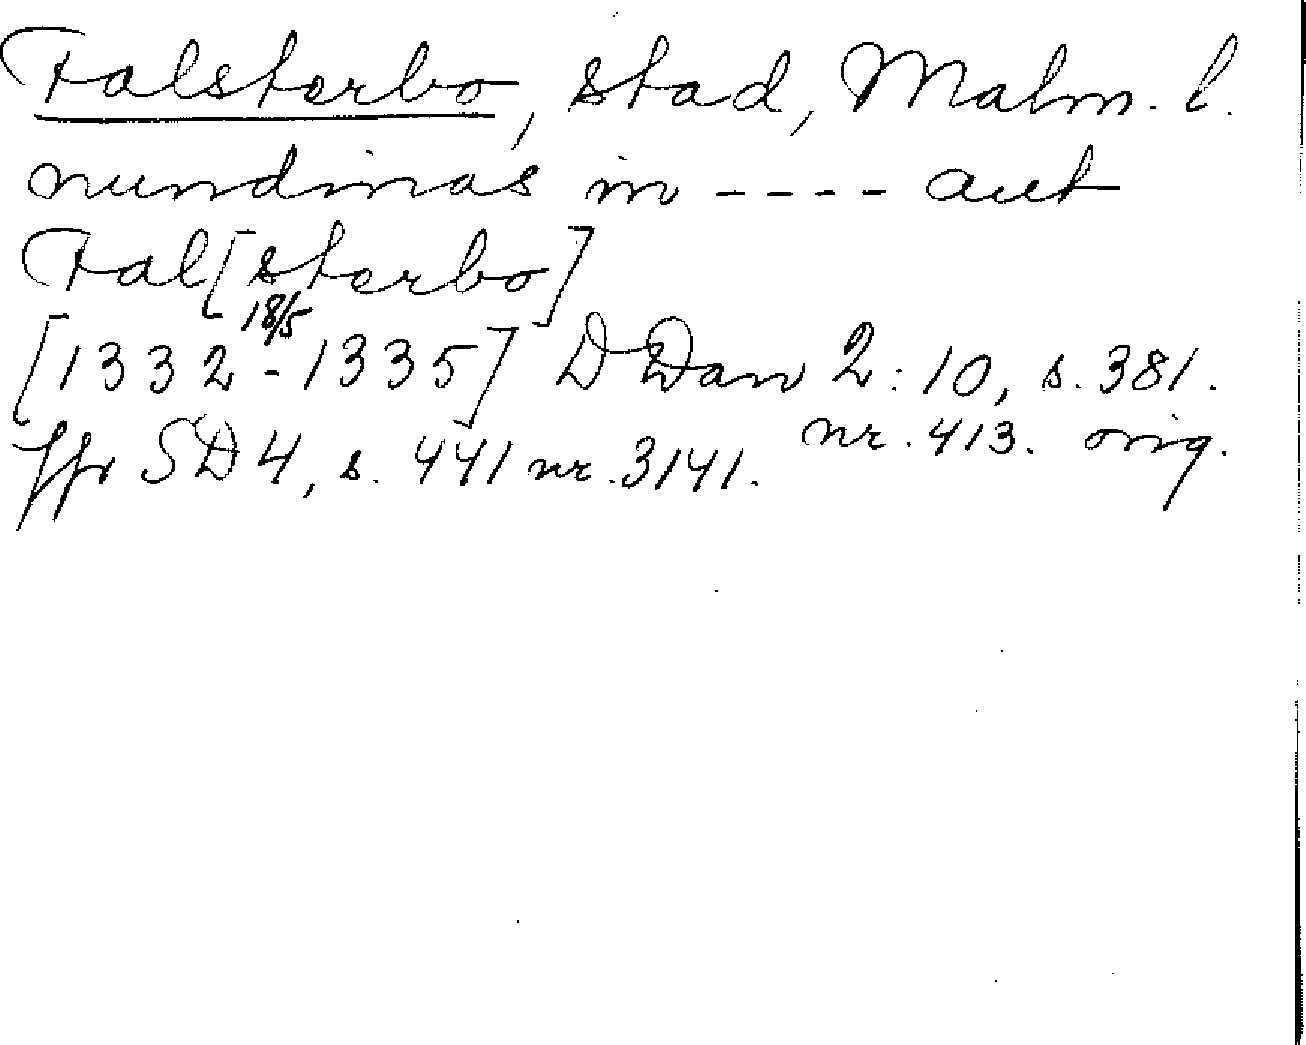 Falsterbo, stad, Malm. l.
nundinas in ---- aut
Fal[sterbo]
[1332-18/5 1335] DDan 2:10, s. 381.
nr. 413. orig.
Jfr SD 4, s. 441 nr. 3141.